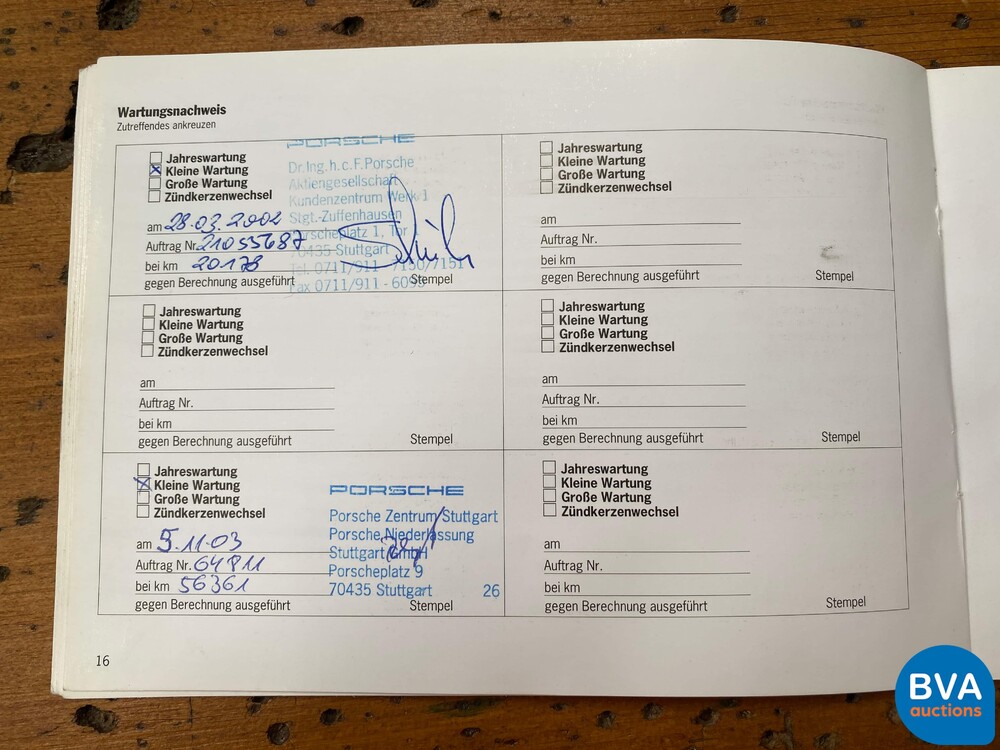 Wartungsnachweis
Zutreffendes ankreuzen
Jahreswartung
Kleine Wartung
Große Wartung
Zündkerzenwechsel
am 28.03.2002
Auftrag Nr. 21055687
bei km 20178
gegen Berechnung ausgeführt
Stempel
PORSCHE
Dr.Ing.h.c.F.Porsche
Aktiengesellschaft
Kundenzentrum Werk 1
Stgt.-Zuffenhausen
Porscheplatz 1, Tor
70435 Stuttgart
Tel. 0711/911 - 7150/7151
Fax 0711/911 - 6095
Jahreswartung
Kleine Wartung
Große Wartung
Zündkerzenwechsel
am
Auftrag Nr.
bei km
gegen Berechnung ausgeführt
Stempel
Jahreswartung
Kleine Wartung
Große Wartung
Zündkerzenwechsel
am
Auftrag Nr.
bei km
gegen Berechnung ausgeführt
Stempel
Jahreswartung
Kleine Wartung
Große Wartung
Zündkerzenwechsel
am
Auftrag Nr.
bei km
gegen Berechnung ausgeführt
Stempel
Jahreswartung
Kleine Wartung
Große Wartung
Zündkerzenwechsel
am 5.11.03
Auftrag Nr. 64811
bei km 56361
gegen Berechnung ausgeführt
Stempel
PORSCHE
Porsche Zentrum Stuttgart
Porsche Niederlassung
Stuttgart GmbH
Porscheplatz 9
70435 Stuttgart 26
Jahreswartung
Kleine Wartung
Große Wartung
Zündkerzenwechsel
am
Auftrag Nr.
bei km
gegen Berechnung ausgeführt
Stempel
16
BVA
auctions